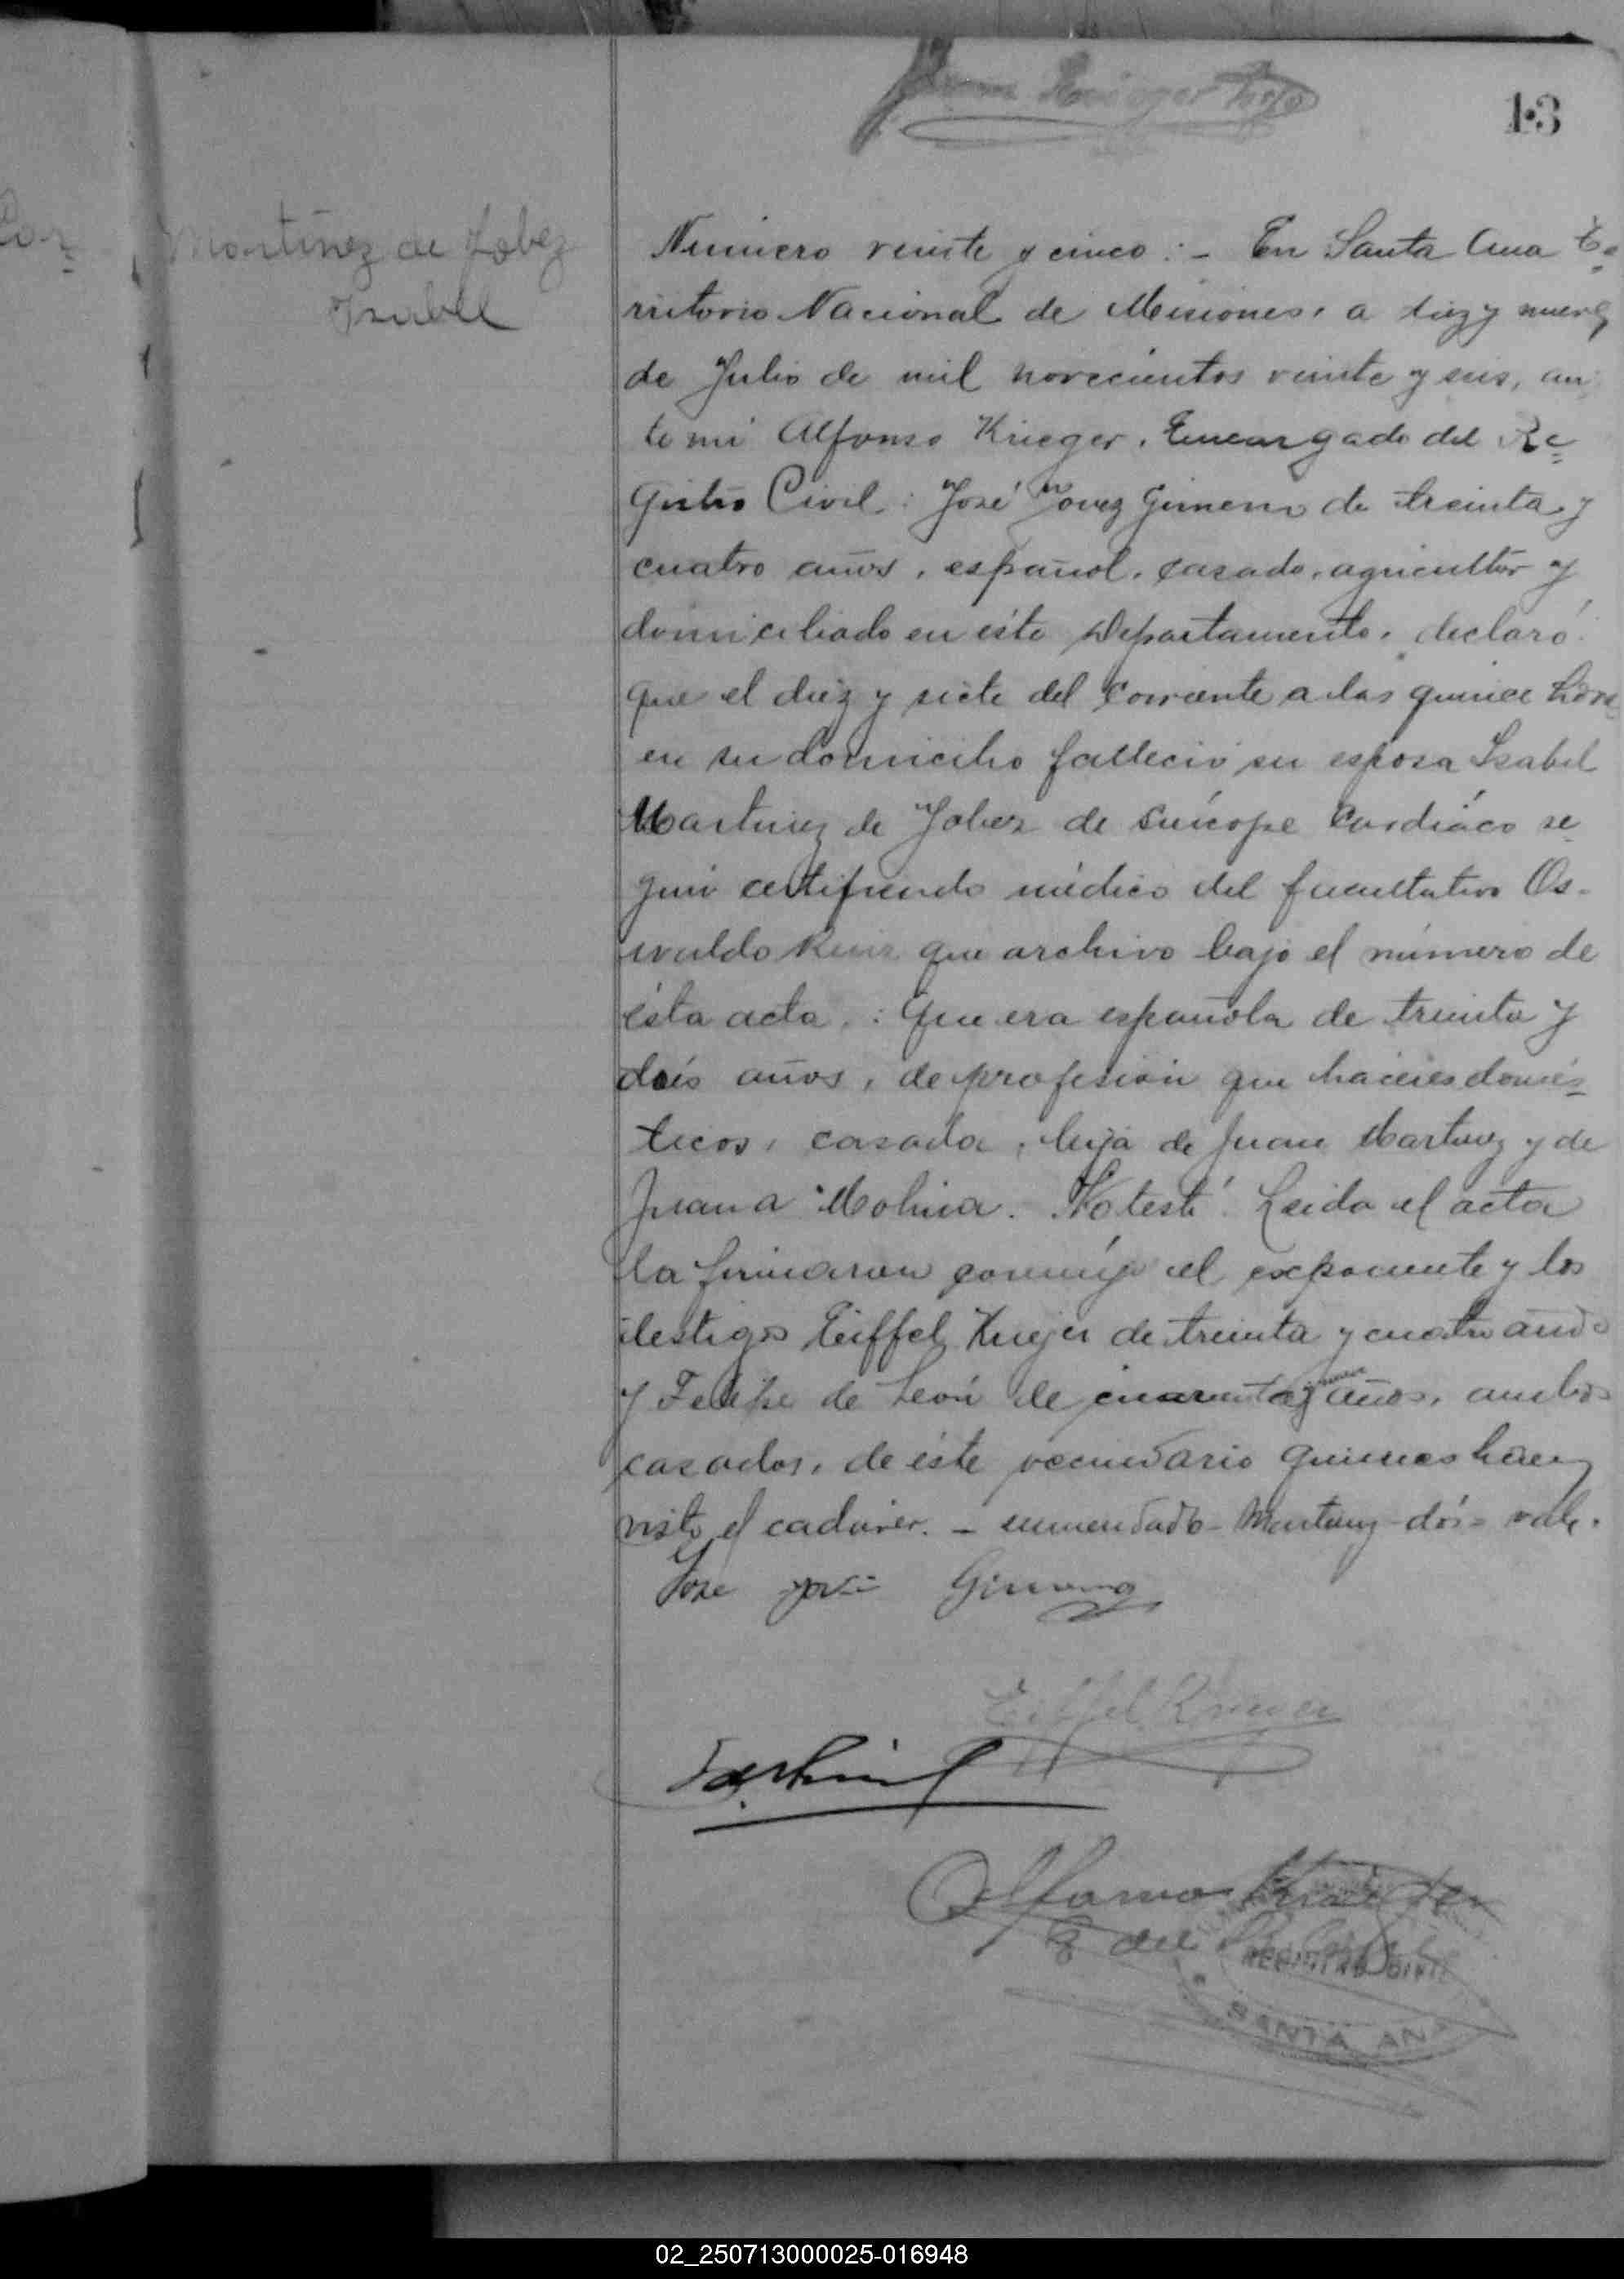 13
Martínez de Jobez
Isabel
Número veinte y cinco: - En Santa Ana Te-
rritorio Nacional de Misiones, a diez y nueve
de Julio de mil novecientos veinte y seis, an
te mi Alfonso Krieger, Encargado del Re=
gistro Civil: José Jovez Gimeno de treinta y
cuatro años, español, casado, agricultor y
domiciliado en éste Departamento, declaró:
que el diez y siete del corriente a las quince horas
en su domicilio falleció su esposa Isabel
Martinez de Jobez de síncope cardíaco se
gún certificado médico del facultativo Os-
waldo que archivo bajo el número de
ésta acta.: que era española de treinta y
dós años, de profesión que haceres domés=
ticos, casada, hija de Juan Martinez y de
Juana Molina. No testó. Leida el acta
la firmaron conmigo el exponente y los
testigos Eiffel Krieger de treinta y cuatro años
y Felipe de León de cuarenta y años, ambos
casados, de éste vecindario quienes han
visto el cadáver. - enmendado - Martinez - dós = vale.
Jose Gimeno
Eiffel Krieger
Alfonso Krieger
E del R. Civil
REGISTRO CIVIL
SANTA ANA
02_250713000025-016948